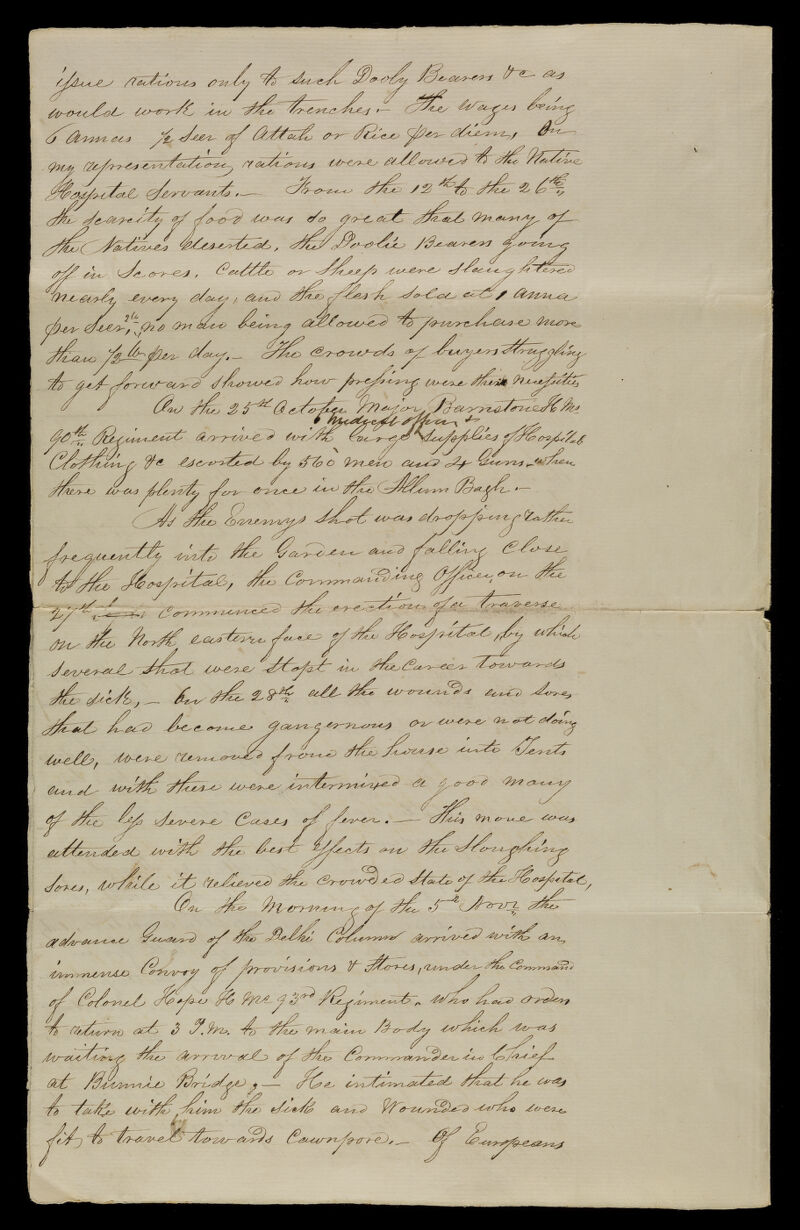 issue rations only to such Dooly Bearers &c as
would work in the trenches. — The wages being
6 Annas ½ Seer of Attah or Rice per diem, On
my representation, rations were allowed to the Native
Hospital Servants. — From the 12th to the 26th,
the scarcity of food was so great that many of
the Natives deserted, the Doolie Bearers going
off in Scores. Cattle or Sheep were slaughtered
nearly every day, and the flesh sold at 1 Anna
per Seer, no man being allowed to purchase more
than ½ lb per day. — The crowds of buyers struggling
to get forward showed how pressing were their necessities
On the 25th October Major Barnstone H. Ms
6 Medical officers &
90th Regiment arrived with large supplies of Hospital
Clothing &c escorted by 560 men and 4 Guns — when
there was plenty for once in the Allum Bagh. —
As the Enemys shot was dropping rather
frequently into the Garden and falling close
to the Hospital, the Commanding Officer, on the
27th commenced the erection of a traverse
on the North eastern face of the Hospital, by which
several shot were stopt in the career towards
the sick, — On the 28th all the wounds and sores
that had become gangernous or were not doing
well, were removed from the house into Tents
and with these were intermixed a good many
of the less severe cases of fever. — This move was
attended with the best effects on the Sloughing
Sores, while it relieved the crowded State of the Hospital,
On the Morning of the 5th Novr. the
advance Guard of the Delhi Column arrived with an
immense Convoy of provisions & Stores, under the Command
of Colonel Hope H. Ms 93rd Regiment. who had orders
to return at 3 P.M. to the main Body which was
waiting the arrival of the Commander in Chief
at Bunnie Bridge, — He intimated that he was
to take with him the sick and Wounded who were
fit, to travel towards Cawnpore. — Of Europeans